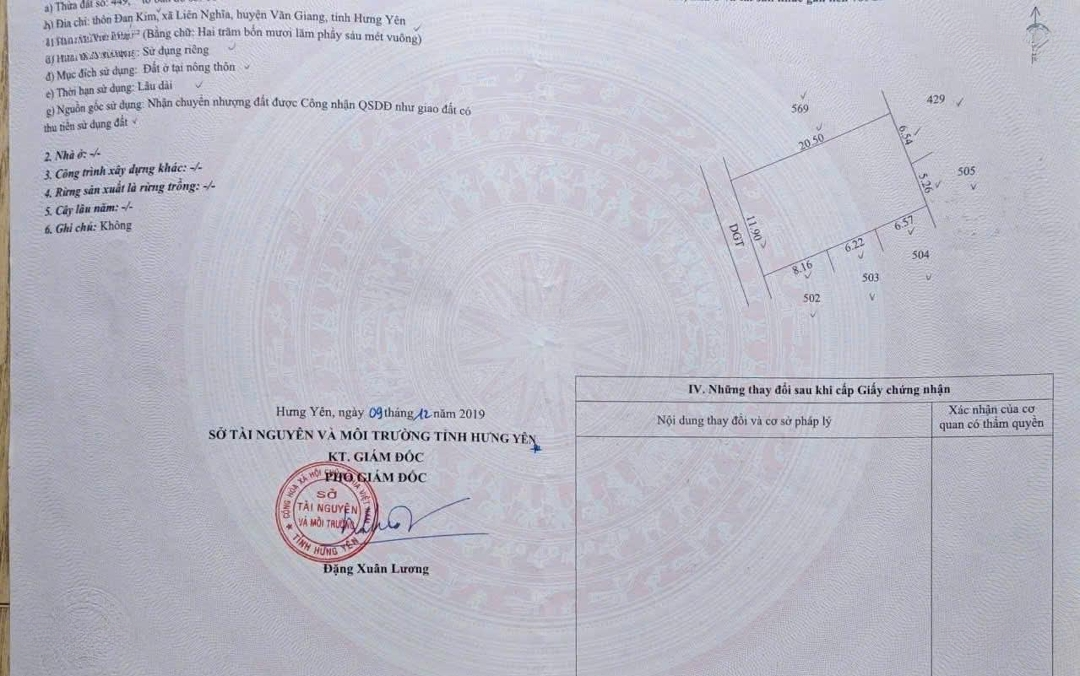 a) Thửa đất số: 449,
b) Địa chỉ: thôn Đan Kim, xã Liên Nghĩa, huyện Văn Giang, tỉnh Hưng Yên
(Bằng chữ: Hai trăm bốn mươi lăm phẩy sáu mét vuông)
Sử dụng riêng
đ) Mục đích sử dụng: Đất ở tại nông thôn
e) Thời hạn sử dụng: Lâu dài
g) Nguồn gốc sử dụng: Nhận chuyển nhượng đất được Công nhận QSDĐ như giao đất có
thu tiền sử dụng đất
2. Nhà ở: -/-
3. Công trình xây dựng khác: -/-
4. Rừng sản xuất là rừng trồng: -/-
5. Cây lâu năm: -/-
6. Ghi chú: Không
569
429
20.50
6.54
505
5.26
ĐGT
11.90
6.57
6.22
8.16
504
503
502
Hưng Yên, ngày 09 tháng 12 năm 2019
SỞ TÀI NGUYÊN VÀ MÔI TRƯỜNG TỈNH HƯNG YÊN
KT. GIÁM ĐỐC
PHÓ GIÁM ĐỐC
CỘNG HÒA XÃ HỘI CHỦ NGHĨA VIỆT NAM
SỞ
TÀI NGUYÊN
VÀ MÔI TRƯỜNG
TỈNH HƯNG YÊN
Đặng Xuân Lương
IV. Những thay đổi sau khi cấp Giấy chứng nhận
Nội dung thay đổi và cơ sở pháp lý
Xác nhận của cơ
quan có thẩm quyền